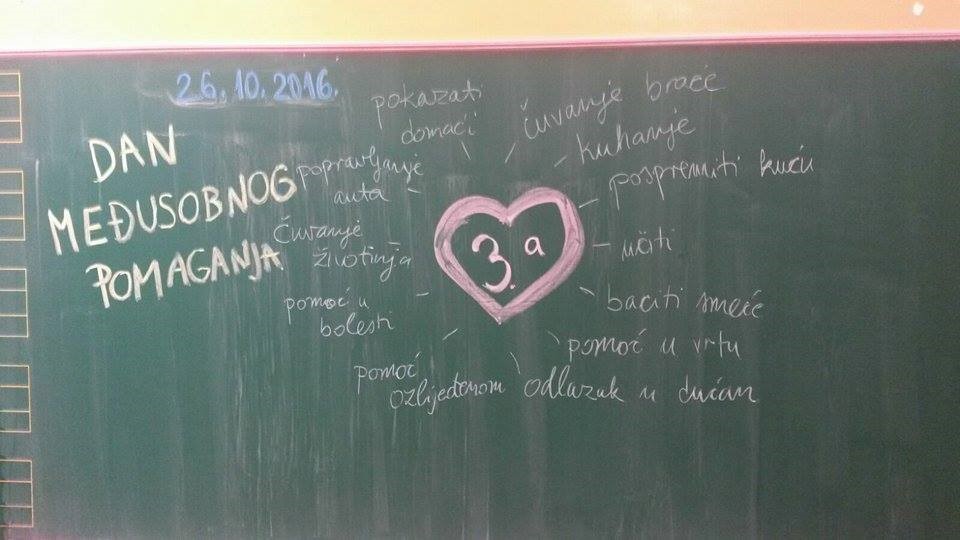 26.10.2016.
DAN
MEĐUSOBNOG
POMAGANJA
3.a
pokazati
domaći
čuvanje braće
kuhanje
pospremiti kuću
učiti
baciti smeće
pomoć u vrtu
odlazak u dućan
pomoć
ozlijeđenom
pomoć u
bolesti
čuvanje
životinja
popravljanje
auta